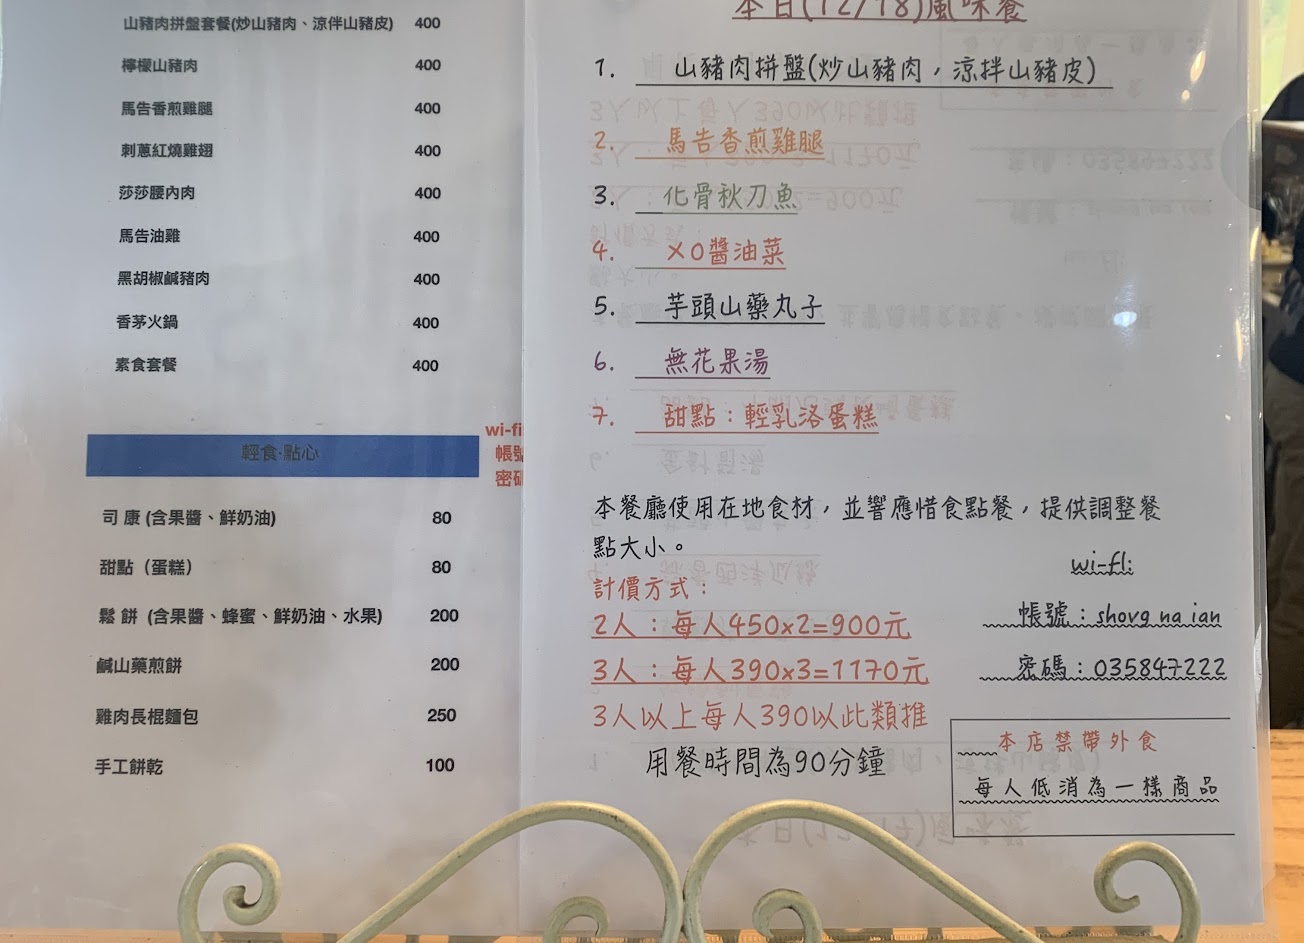 山豬肉拼盤套餐(炒山豬肉、涼伴山豬皮) 400
檸檬山豬肉 400
馬告香煎雞腿 400
刺蔥紅燒雞翅 400
莎莎腰內肉 400
馬告油雞 400
黑胡椒鹹豬肉 400
香茅火鍋 400
素食套餐 400
輕食·點心
wi-fi
帳號
密碼
司 康 (含果醬、鮮奶油) 80
甜點（蛋糕） 80
鬆 餅 (含果醬、蜂蜜、鮮奶油、水果) 200
鹹山藥煎餅 200
雞肉長棍麵包 250
手工餅乾 100
本日(12/18)風味餐
1. 山豬肉拼盤(炒山豬肉，涼拌山豬皮)
2. 馬告香煎雞腿
3. 化骨秋刀魚
4. XO醬油菜
5. 芋頭山藥丸子
6. 無花果湯
7. 甜點：輕乳洛蛋糕
本餐廳使用在地食材，並響應惜食點餐，提供調整餐
點大小。
計價方式：
2人：每人450x2=900元
3人：每人390x3=1170元
3人以上每人390以此類推
用餐時間為90分鐘
wi-fi:
帳號：shong na ian
密碼：035847222
本店禁帶外食
每人低消為一樣商品